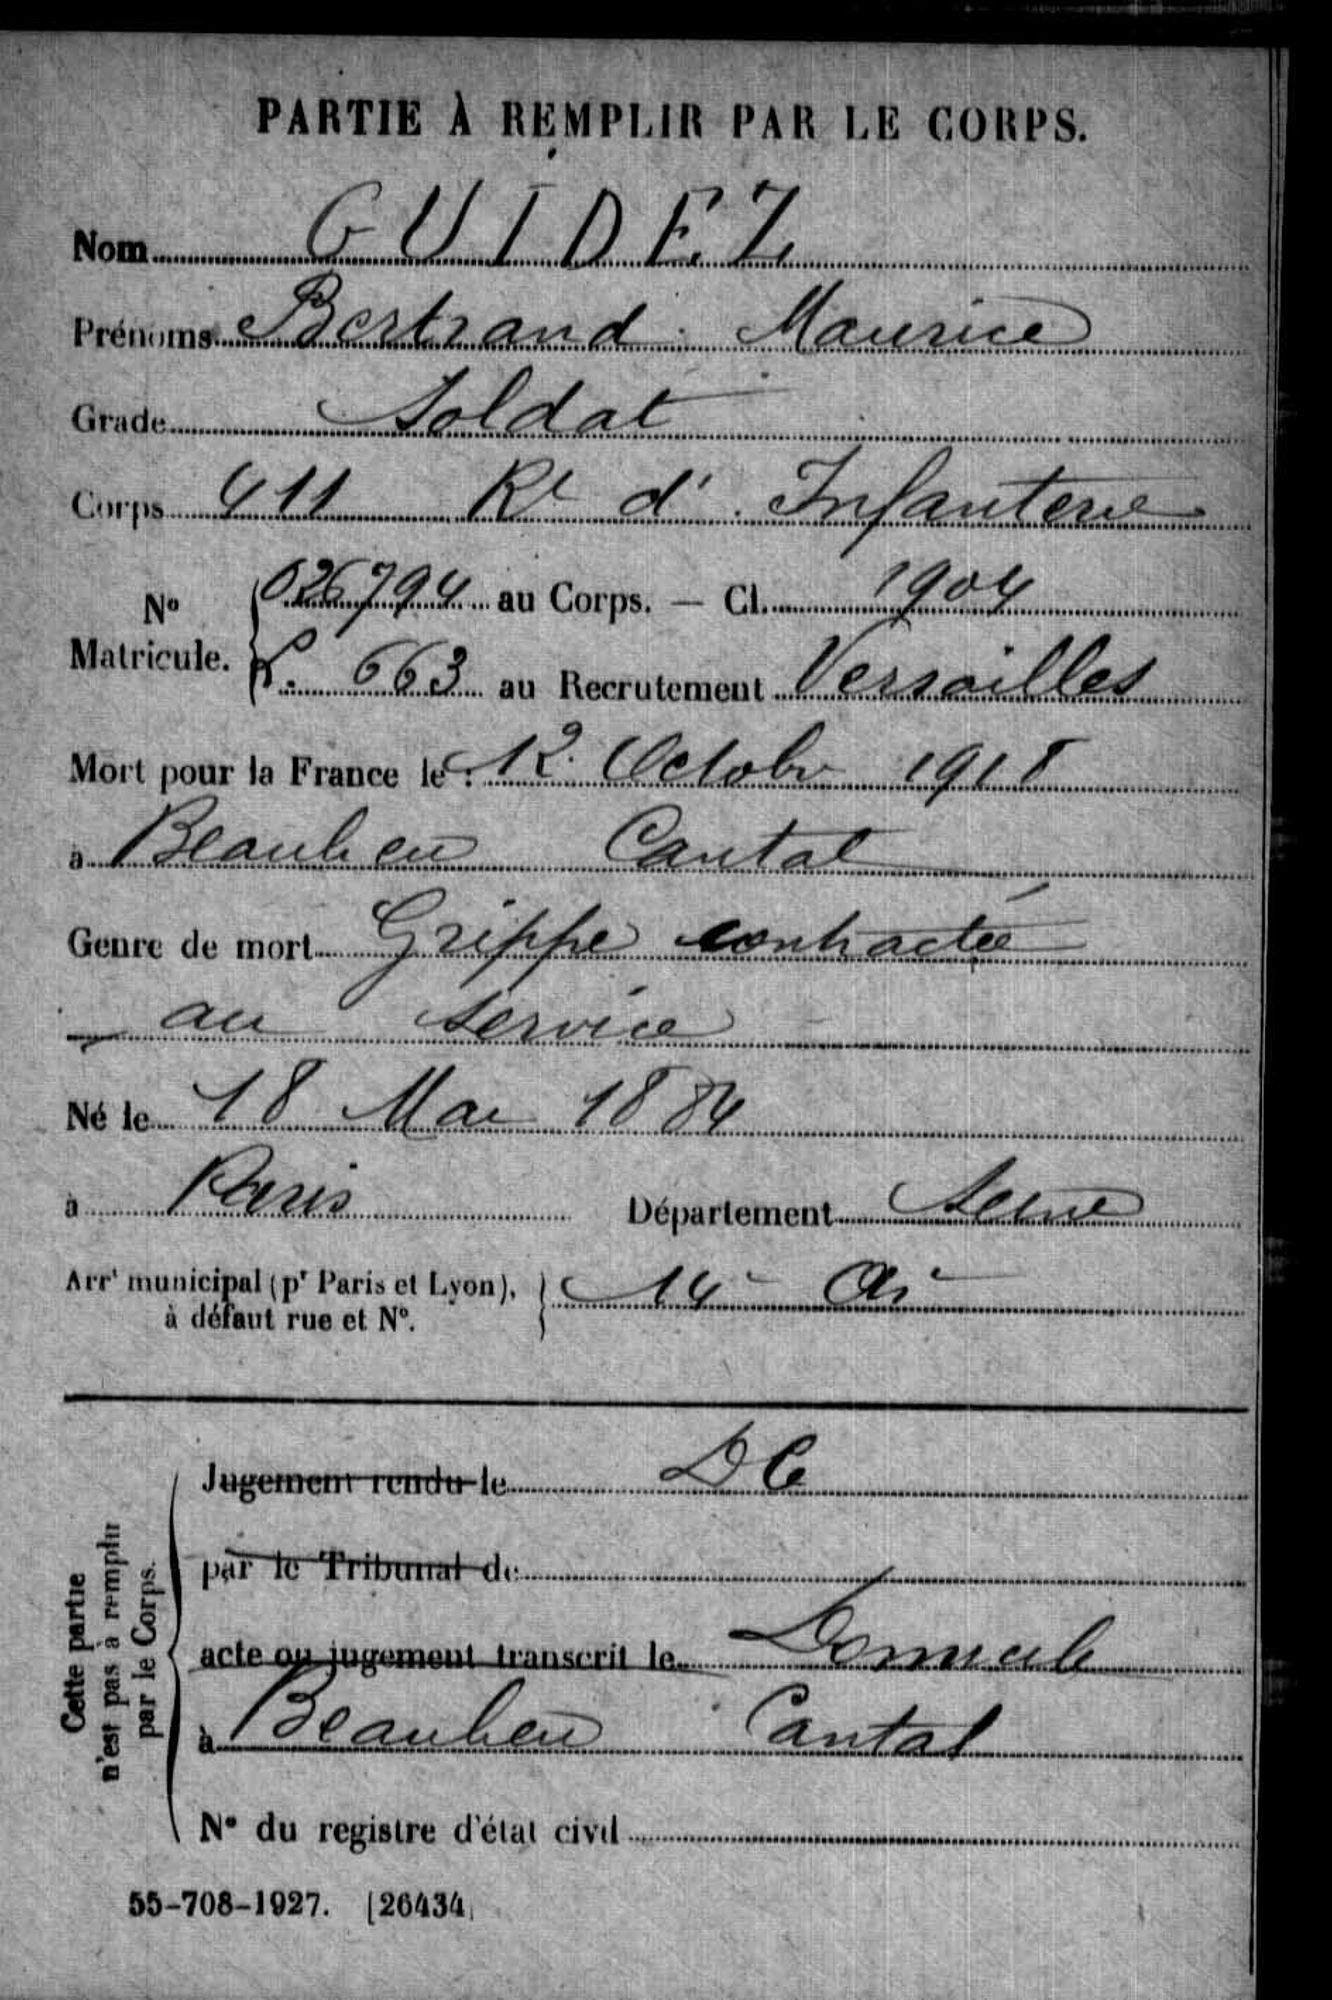 PARTIE À REMPLIR PAR LE CORPS.
Nom GUIDEZ
Prénoms Bertrand Maurice
Grade Soldat
Corps 411 Rt d'Infanterie
No Matricule. 026794 au Corps. — Cl. 1904
P. 663 au Recrutement Versailles
Mort pour la France le : 12 Octobre 1918
à Beaulieu Cantal
Genre de mort Grippe contractée
au service
Né le 18 Mai 1884
à Paris Département Seine
Arrt municipal (pr Paris et Lyon), 14e Ar
à défaut rue et No.
Cette partie
n'est pas à remplir
par le Corps.
Jugement rendu le DC
par le Tribunal de
acte ou jugement transcrit le Domicile
à Beaulieu Cantal
No du registre d'état civil
55-708-1927. [26434]